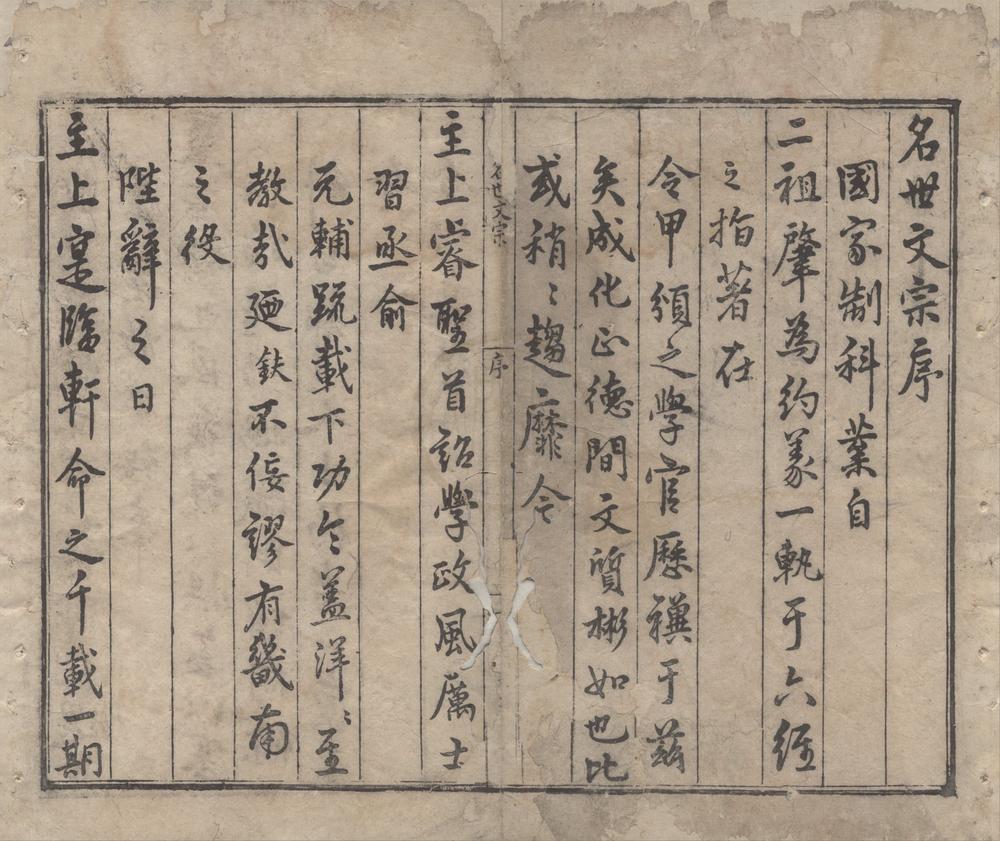 名世文宗序
國家制科業自
二祖肇為約羕一軌于六經
之指著在
令甲頒之學官歷禩于茲
矣成化正德間文質彬如也比
或稍〻趨靡令
名世文宗
序
主上睿聖首詔學政風厲士
習亟俞
元輔䟽載下功令蓋洋〻至
教哉廼鈇不佞謬有畿甸
之役
陛辭之日
主上寔臨軒命之千載一期